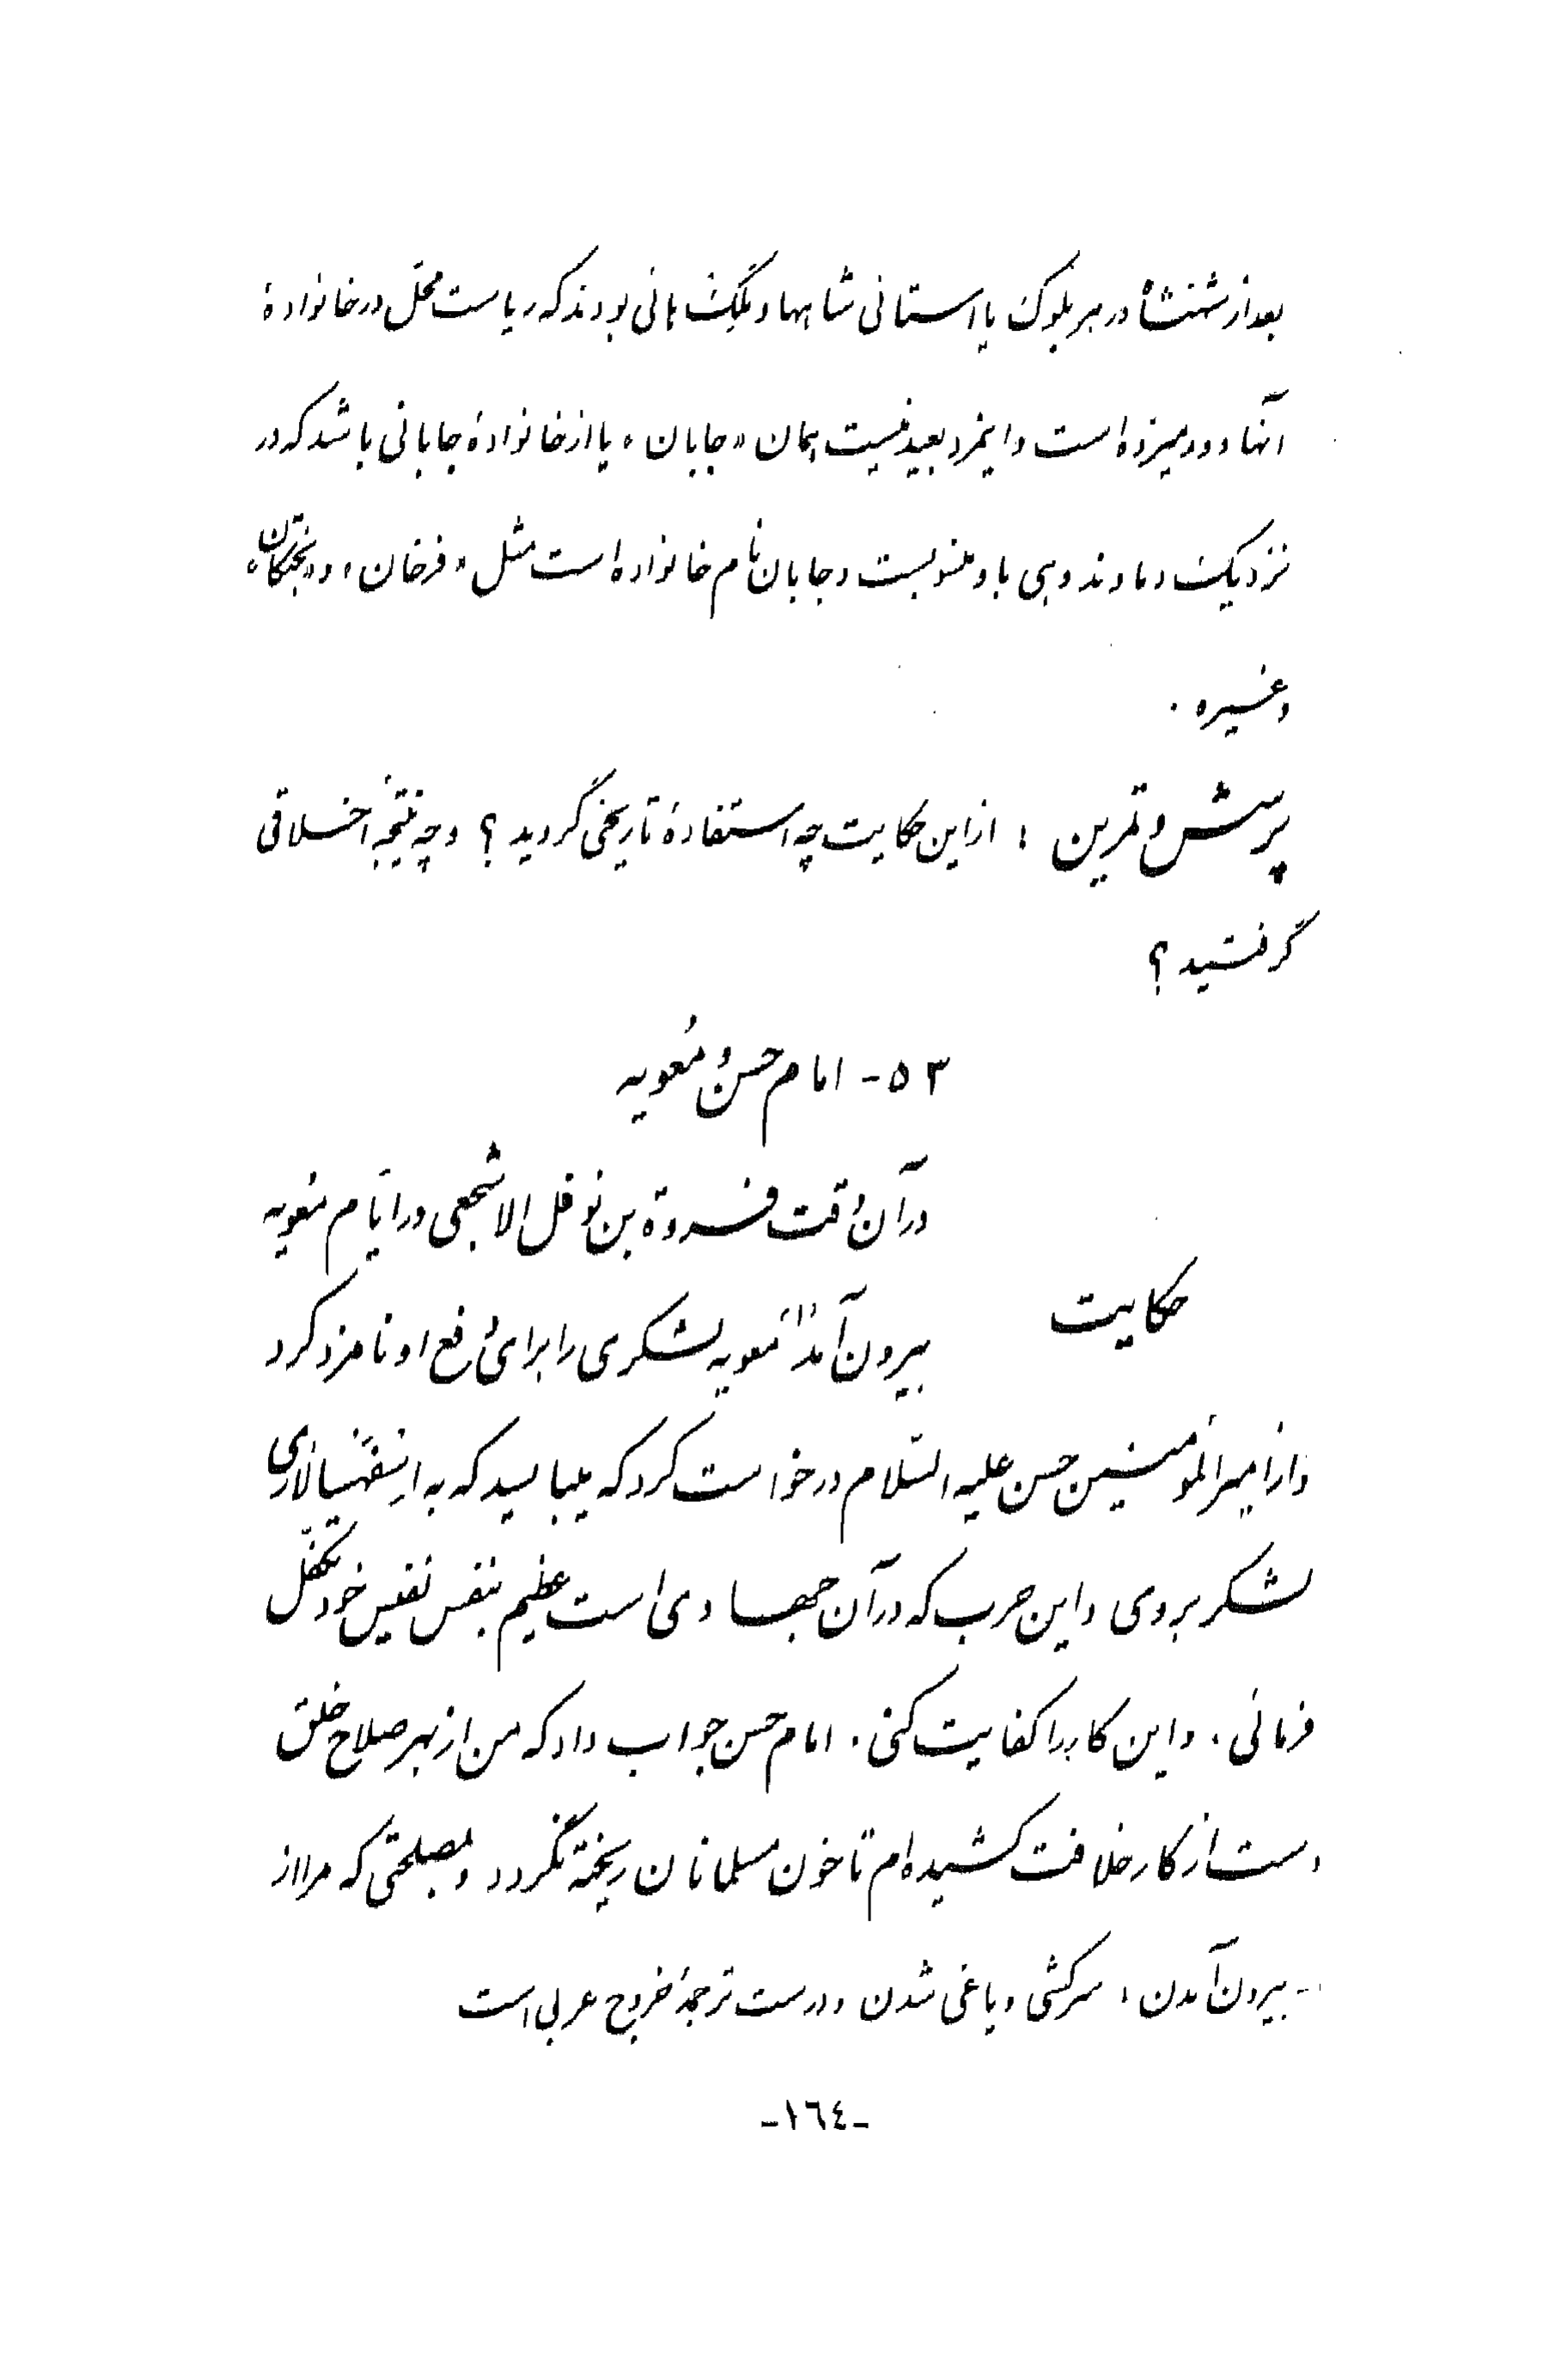 بعد از شهنشاه در هر بلوک یا استانی شاهها و ملک هائی بودند که ریاست محل در خانوادهٔ
آنها دور میزده است و اینمرد بعید نیست همان «جابان» یا از خانوادهٔ جابانی باشد که در
نزدیک دماوند دهی باو منسوبست و جابان نام خانواده است مثل «فرخان» و «نخیکان»
وغیره .
پرسش و تمرین : از این حکایت چه استفادهٔ تاریخی گردید ؟ و چه نتیجهٔ اخلاقی
گرفتید ؟
۵۳- امام حسن و معویه
حکایت
در آن وقت فروة بن نوفل الاشجعی در ایّام معویه
بیرون آمد۱ معویه لشکری را برای دفع او نامزد کرد
و از امیرالمؤمنین حسن علیه السّلام درخواست کرد که میباید که به اسفهسالاری
لشکر بروی و این حرب که در آن جهادی است عظیم بنفس نفیس خود تکفّل
فرمائی . و این کار را کفایت کنی . امام حسن جواب داد که من از بهر صلاح خلق
دست از کار خلافت کشیده‌ام تا خون مسلمانان ریخته نگردد و مصلحتی که مرا از
۱- بیرون آمدن ، سرکشی و یاغی شدن و درست ترجمهٔ خروج عربی است
-١٦٤-